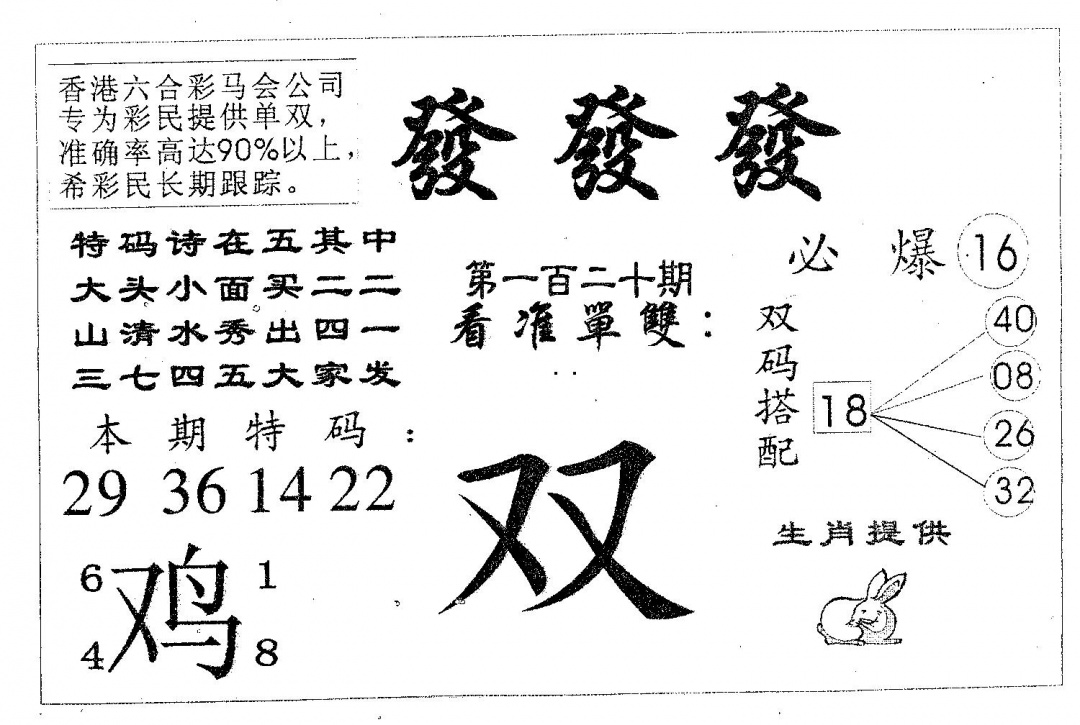 香港六合彩马会公司
专为彩民提供单双，
准确率高达90%以上，
希彩民长期跟踪。
發發發
特码诗在五其中
大头小面买二二
山清水秀出四一
三七四五大家发
第一百二十期
看准單雙：
双
必爆 16
双码搭配
18
40
08
26
32
本期特码：
29 36 14 22
6 1
鸡
4 8
生肖提供